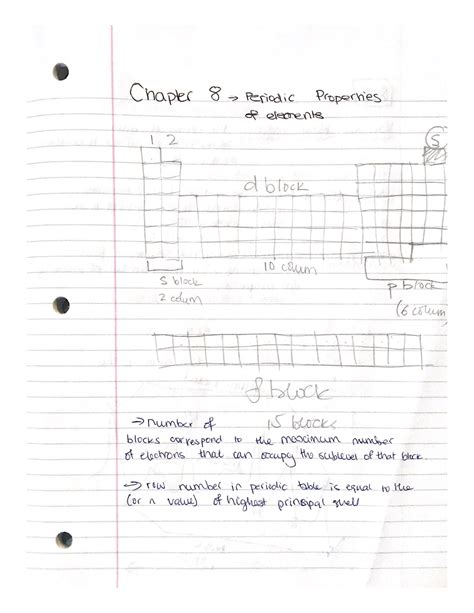 Chapter 8 → Periodic Properties
of elements
1 2
S
d block
10 colum
s block
2 colum
p block
(6 colum
f block
→ number of 15 blocks
blocks correspond to the maximum number
of electrons that can occupy the sublevel of that block.
→ row number in periodic table is equal to the
(or n value) of highest principal shell